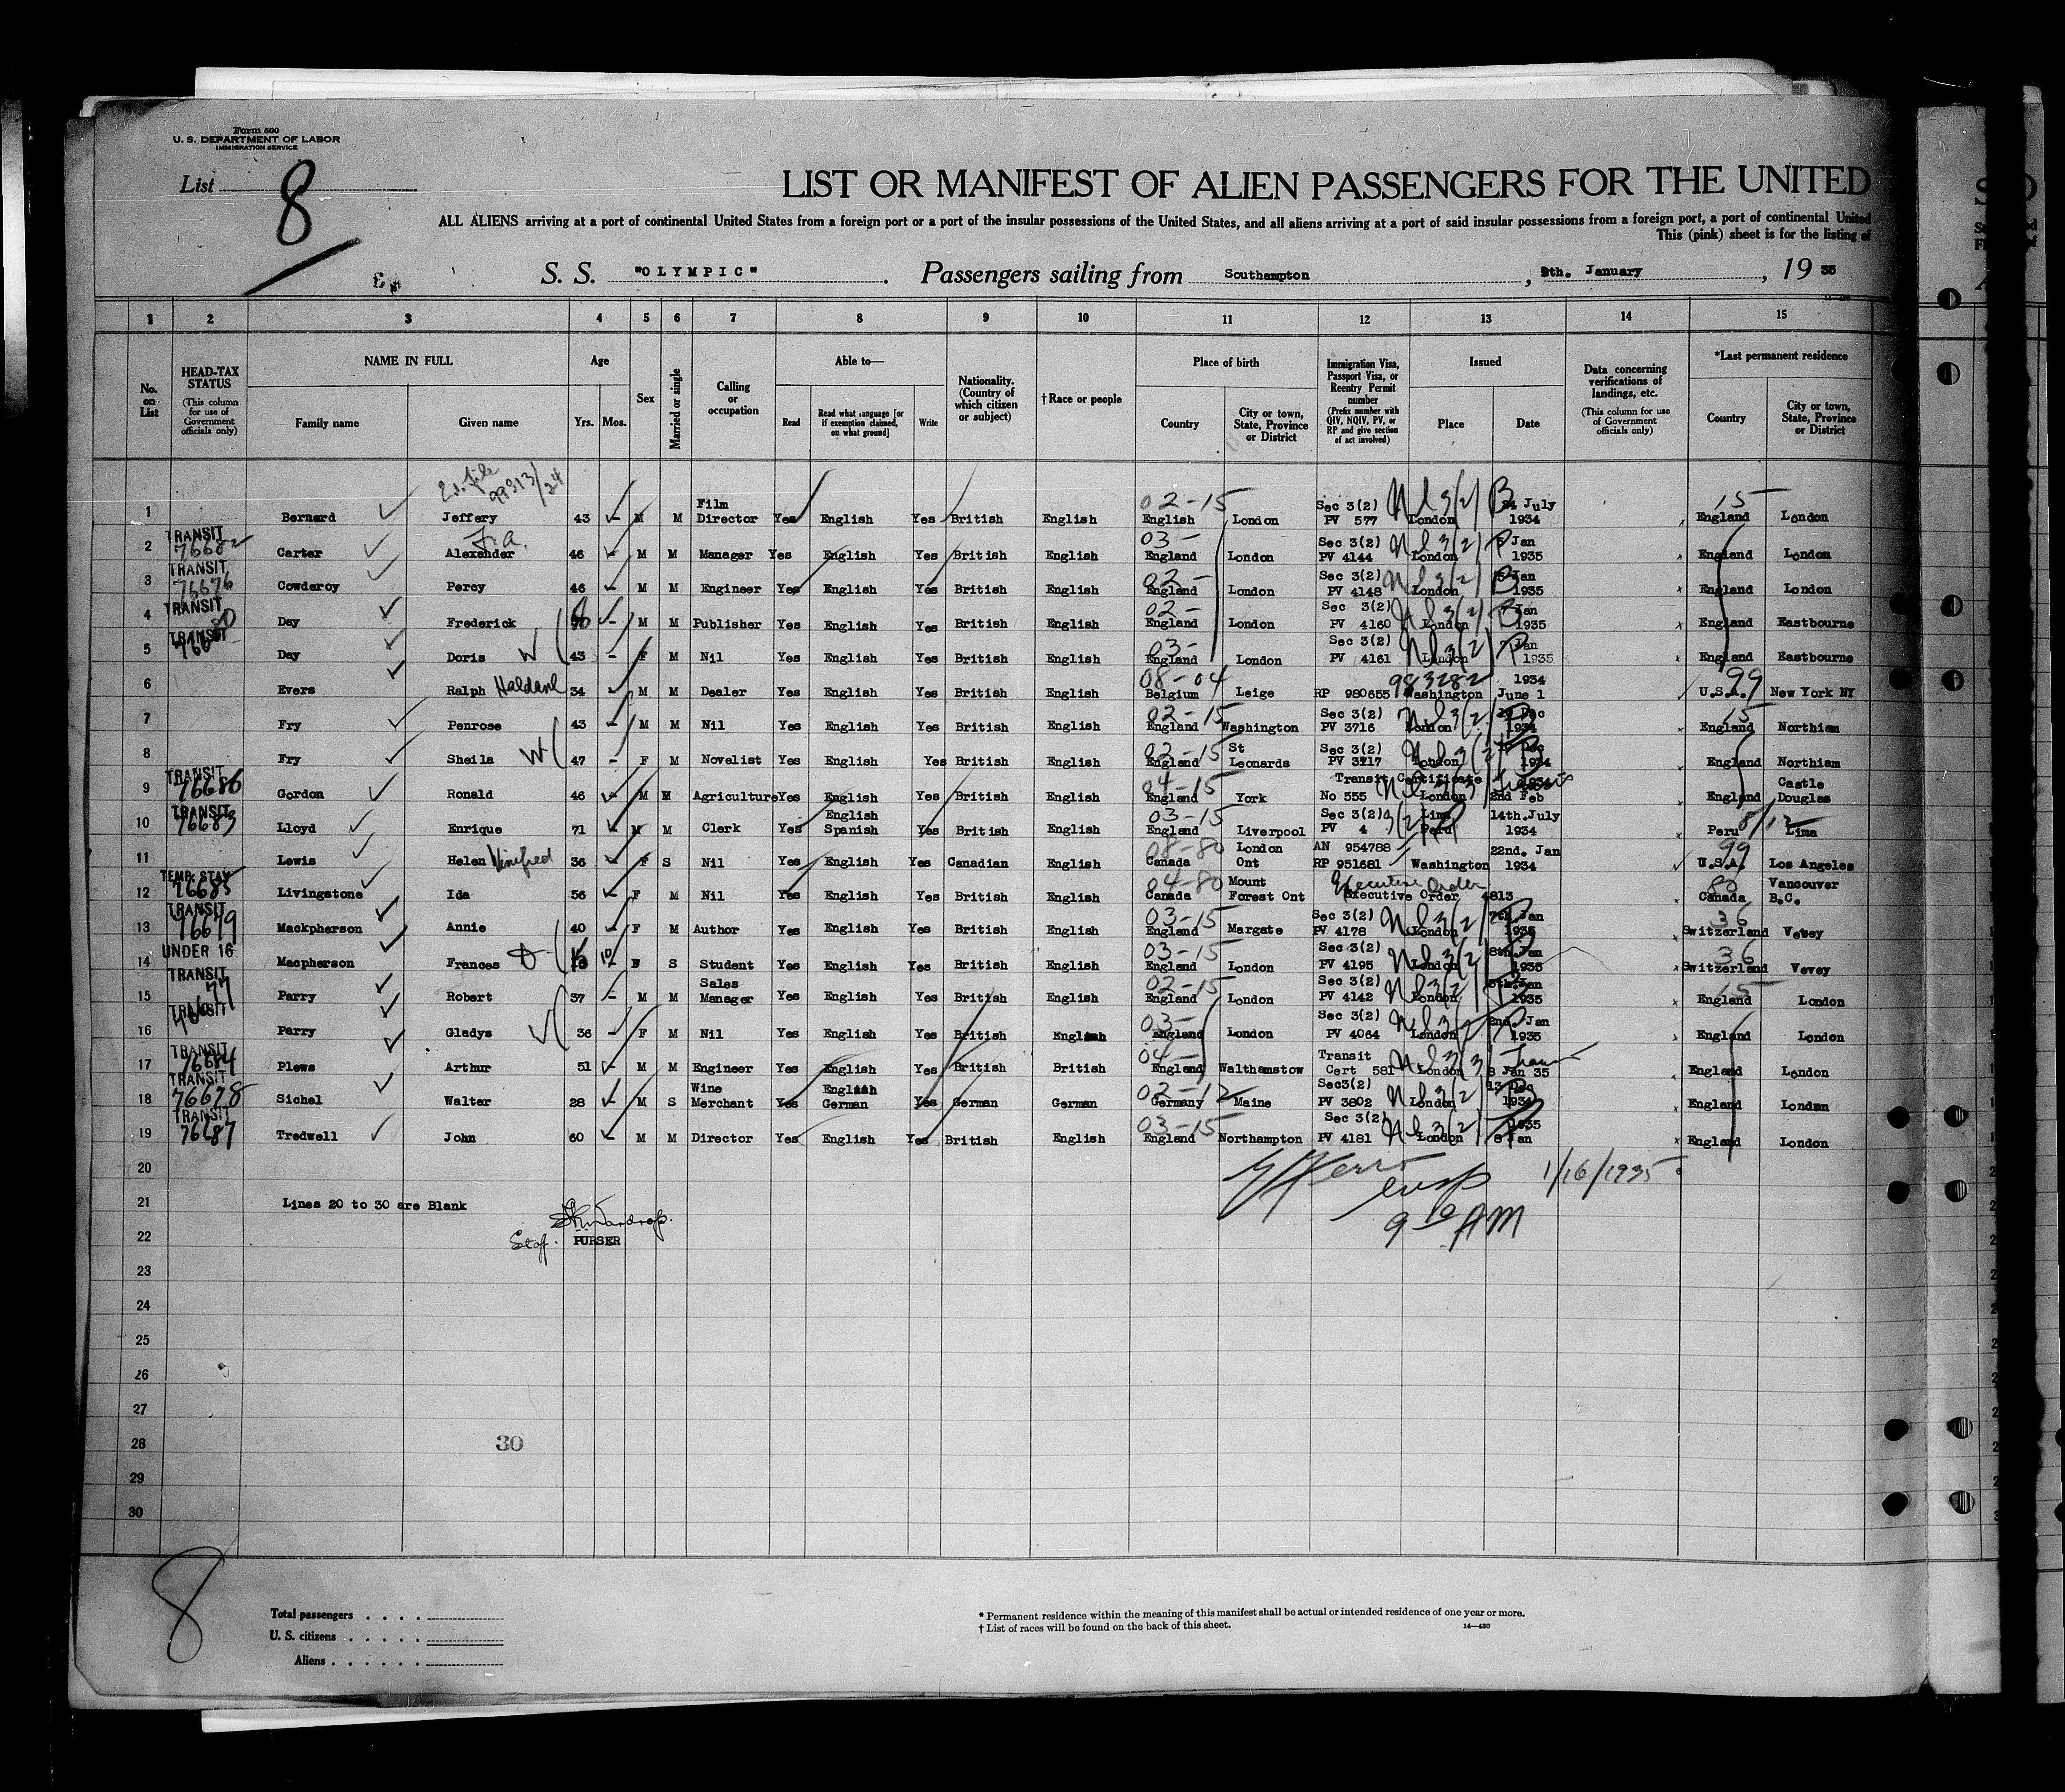 Form 500
U. S. DEPARTMENT OF LABOR
IMMIGRATION SERVICE
List 8
LIST OR MANIFEST OF ALIEN PASSENGERS FOR THE UNITED
ALL ALIENS arriving at a port of continental United States from a foreign port or a port of the insular possessions of the United States, and all aliens arriving at a port of said insular possessions from a foreign port, a port of continental United
This (pink) sheet is for the listing of
S. S. "OLYMPIC". Passengers sailing from Southampton, 9th. January, 19 35
1 2 3 4 5 6 7 8 9 10 11 12 13 14 15
No. on List
HEAD-TAX STATUS (This column for use of Government officials only)
NAME IN FULL Family name Given name
Age Yrs. Mos.
Sex
Married or single
Calling or occupation
Able to— Read Read what language [or if exemption claimed, on what ground] Write
Nationality. (Country of which citizen or subject)
† Race or people
Place of birth Country City or town, State, Province or District
Immigration Visa, Passport Visa, or Reentry Permit number (Prefix number with QIV, NQIV, PV, or RP and give section of act involved)
Issued Place Date
Data concerning verifications of landings, etc. (This column for use of Government officials only)
*Last permanent residence Country City or town, State, Province or District
99313/24
1 Bernard Jeffery 43 - M M Film Director Yes English Yes British English 02-15 English London Sec 3(2) PV 577 London 24 July 1934 15 England London
2 TRANSIT 76682 Carter Alexander 46 - M M Manager Yes English Yes British English 03- England London Sec 3(2) PV 4144 London Jan 1935 England London
3 TRANSIT 76676 Cowderoy Percy 46 - M M Engineer Yes English Yes British English 02- England London Sec 3(2) PV 4148 London Jan 1935 England London
4 TRANSIT Day Frederick - M M Publisher Yes English Yes British English 02- England London Sec 3(2) PV 4160 London Jan 1935 England Eastbourne
5 TRANSIT Day Doris W 43 - F M Nil Yes English Yes British English 03- England London Sec 3(2) PV 4161 London Jan 1935 England Eastbourne
6 Evers Ralph Haldane 34 M M Dealer Yes English Yes British English 08-04 Belgium Leige RP 980655 983282 Washington 1934 June 1 99 U.S.A. New York NY
7 Fry Penrose 43 - M M Nil Yes English Yes British English 02-15 England Washington Sec 3(2) PV 3716 London Dec 1934 15 England Northiam
8 Fry Sheila W 47 - F M Novelist Yes English Yes British English 02-15 England St Leonards Sec 3(2) PV 3217 London Dec 1934 England Northiam
9 TRANSIT 76686 Gordon Ronald 46 - M M Agriculture Yes English Yes British English 04-15 England York Transit Certificate No 555 London 2nd Feb 1934 England Castle Douglas
10 TRANSIT 76683 Lloyd Enrique 71 - M M Clerk Yes English Spanish Yes British English 03-15 England Liverpool Sec 3(2) PV 4 Lima Peru 14th.July 1934 Peru Lima
11 Lewis Helen Winifred 36 - F S Nil Yes English Yes Canadian English 08-80 Canada London Ont AN 954788 RP 951681 Washington 22nd. Jan 1934 99 U.S.A. Los Angeles
12 TEMP. STAY 76685 Livingstone Ida 56 - F M Nil Yes English Yes British English 04-80 Canada Mount Forest Ont Executive Order Executive Order 4813 80 Canada Vancouver B.C.
13 TRANSIT 76679 Mackpherson Annie 40 - F M Author Yes English Yes British English 03-15 England Margate Sec 3(2) PV 4178 London 7th Jan 1935 36 Switzerland Vevey
14 UNDER 16 Macpherson Frances 10 - F S Student Yes English Yes British English 03-15 England London Sec 3(2) PV 4195 London 8th Jan 1935 36 Switzerland Vevey
15 TRANSIT Parry Robert 37 - M M Sales Manager Yes English Yes British English 02-15 England London Sec 3(2) PV 4142 London Jan 1935 15 England London
16 TRANSIT Parry Gladys W 36 - F M Nil Yes English Yes British English 03- England London Sec 3(2) PV 4064 London 2nd. Jan 1935 England London
17 TRANSIT 76684 Plews Arthur 51 - M M Engineer Yes English Yes British British 04- England Walthamstow Transit Cert 581 London 8 Jan 35 England London
18 TRANSIT 76678 Sichel Walter 28 - M S Wine Merchant Yes English German Yes German German 02-12 Germany Maine Sec3(2) PV 3802 London 13 Dec 1934 England London
19 TRANSIT 76687 Tredwell John 60 - M M Director Yes English Yes British English 03-15 England Northampton Sec 3(2) PV 4181 London 1935 8 Jan England London
20 1/16/1935
21 Lines 20 to 30 are Blank
22 PURSER AM
23
24
25
26
27
28 30
29
30
8
Total passengers
U. S. citizens
Aliens
* Permanent residence within the meaning of this manifest shall be actual or intended residence of one year or more.
† List of races will be found on the back of this sheet.
14—430